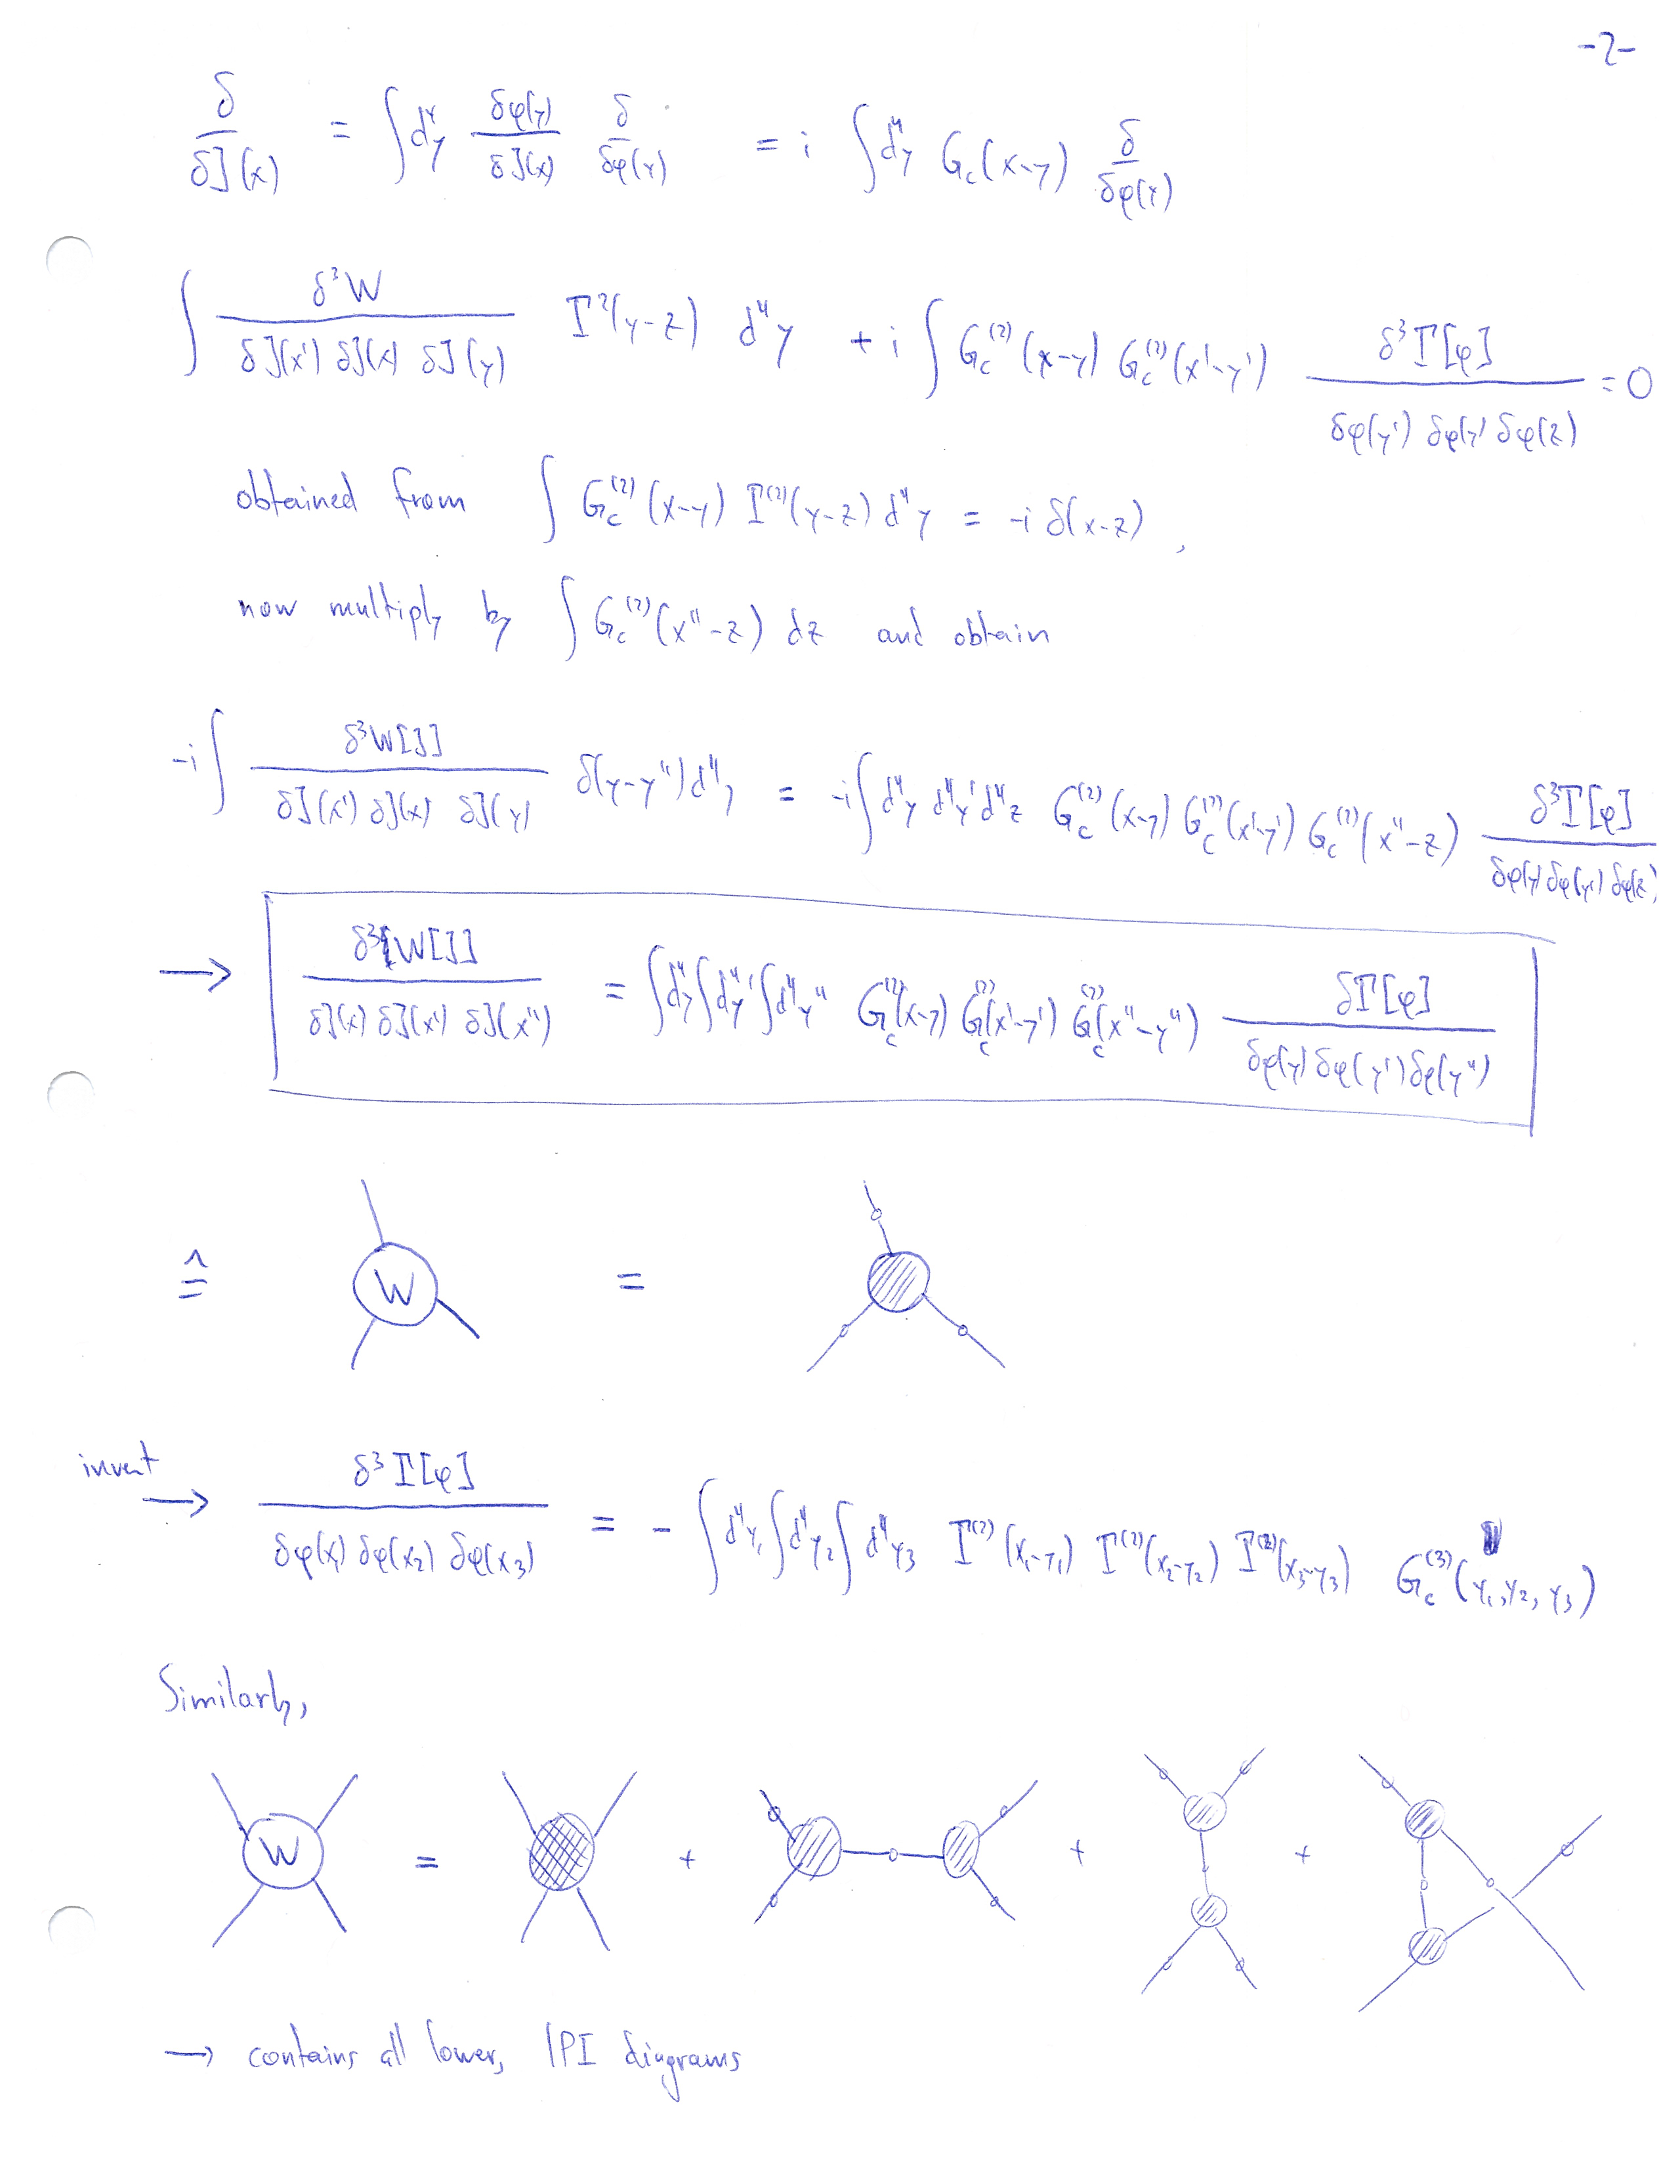 -2-
δ/δJ(x) = ∫d⁴y δφ(y)/δJ(x) δ/δφ(y) = i ∫d⁴y G_c(x-y) δ/δφ(y)
∫ δ³W/δJ(x')δJ(x)δJ(y) Γ²(y-z) d⁴y + i ∫ G_c^(2)(x-y) G_c^(2)(x'-y') δ³Γ[φ]/δφ(y')δφ(y)δφ(z) = 0
obtained from ∫ G_c^(2)(x-y) Γ^(2)(y-z) d⁴y = -i δ(x-z),
now multiply by ∫ G_c^(2)(x''-z) dz and obtain
-i ∫ δ³W[J]/δJ(x')δJ(x)δJ(y) δ(y-y'')d⁴y = -i∫d⁴y d⁴y' d⁴z G_c^(2)(x-y) G_c^(2)(x'-y') G_c^(2)(x''-z) δ³Γ[φ]/δφ(y)δφ(y')δφ(z)
→ δ³W[J]/δJ(x)δJ(x')δJ(x'') = ∫d⁴y∫d⁴y'∫d⁴y'' G_c^(2)(x-y) G_c^(2)(x'-y') G_c^(2)(x''-y'') δΓ[φ]/δφ(y)δφ(y')δφ(y'')
≙ W =
invert → δ³Γ[φ]/δφ(x₁)δφ(x₂)δφ(x₃) = - ∫d⁴y₁∫d⁴y₂∫d⁴y₃ Γ^(2)(x₁-y₁) Γ^(2)(x₂-y₂) Γ^(2)(x₃-y₃) G_c^(3)(y₁,y₂,y₃)
Similarly,
W = + + +
→ contains all lower, 1PI diagrams